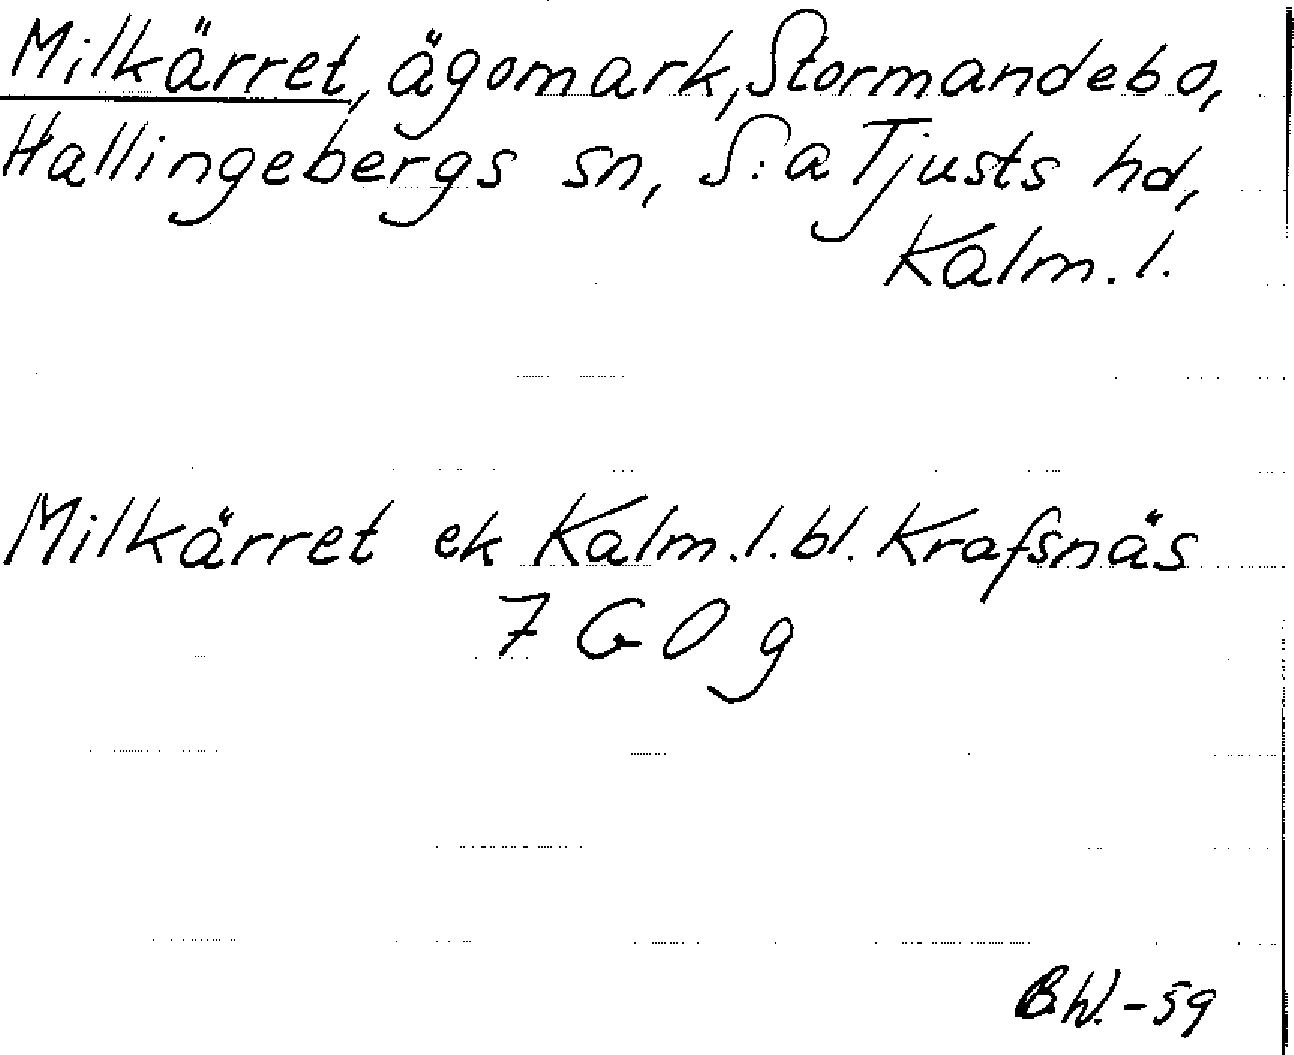 Milkärret, ägomark, Stormandebo,
Hallingebergs sn, S:a Tjusts hd,
Kalm. l.
Milkärret ek Kalm. l. bl. Krafsnäs
7 G O g
B.W. - 59